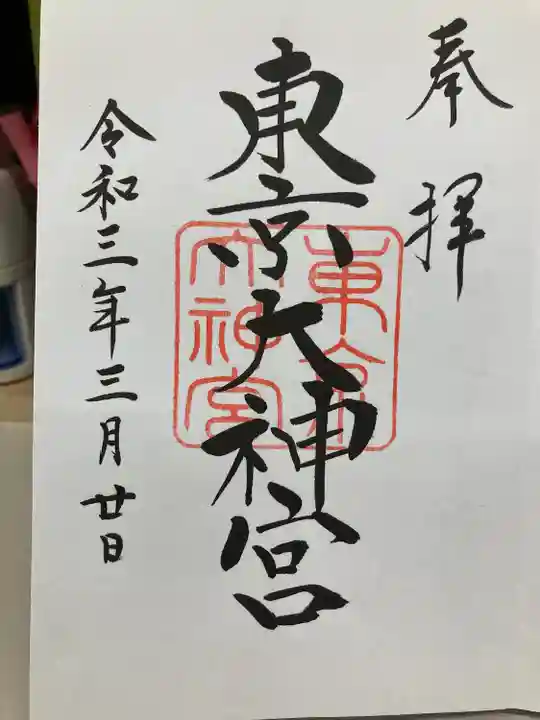 奉拝
東京大神宮
東京
大神宮
令和三年三月廿日